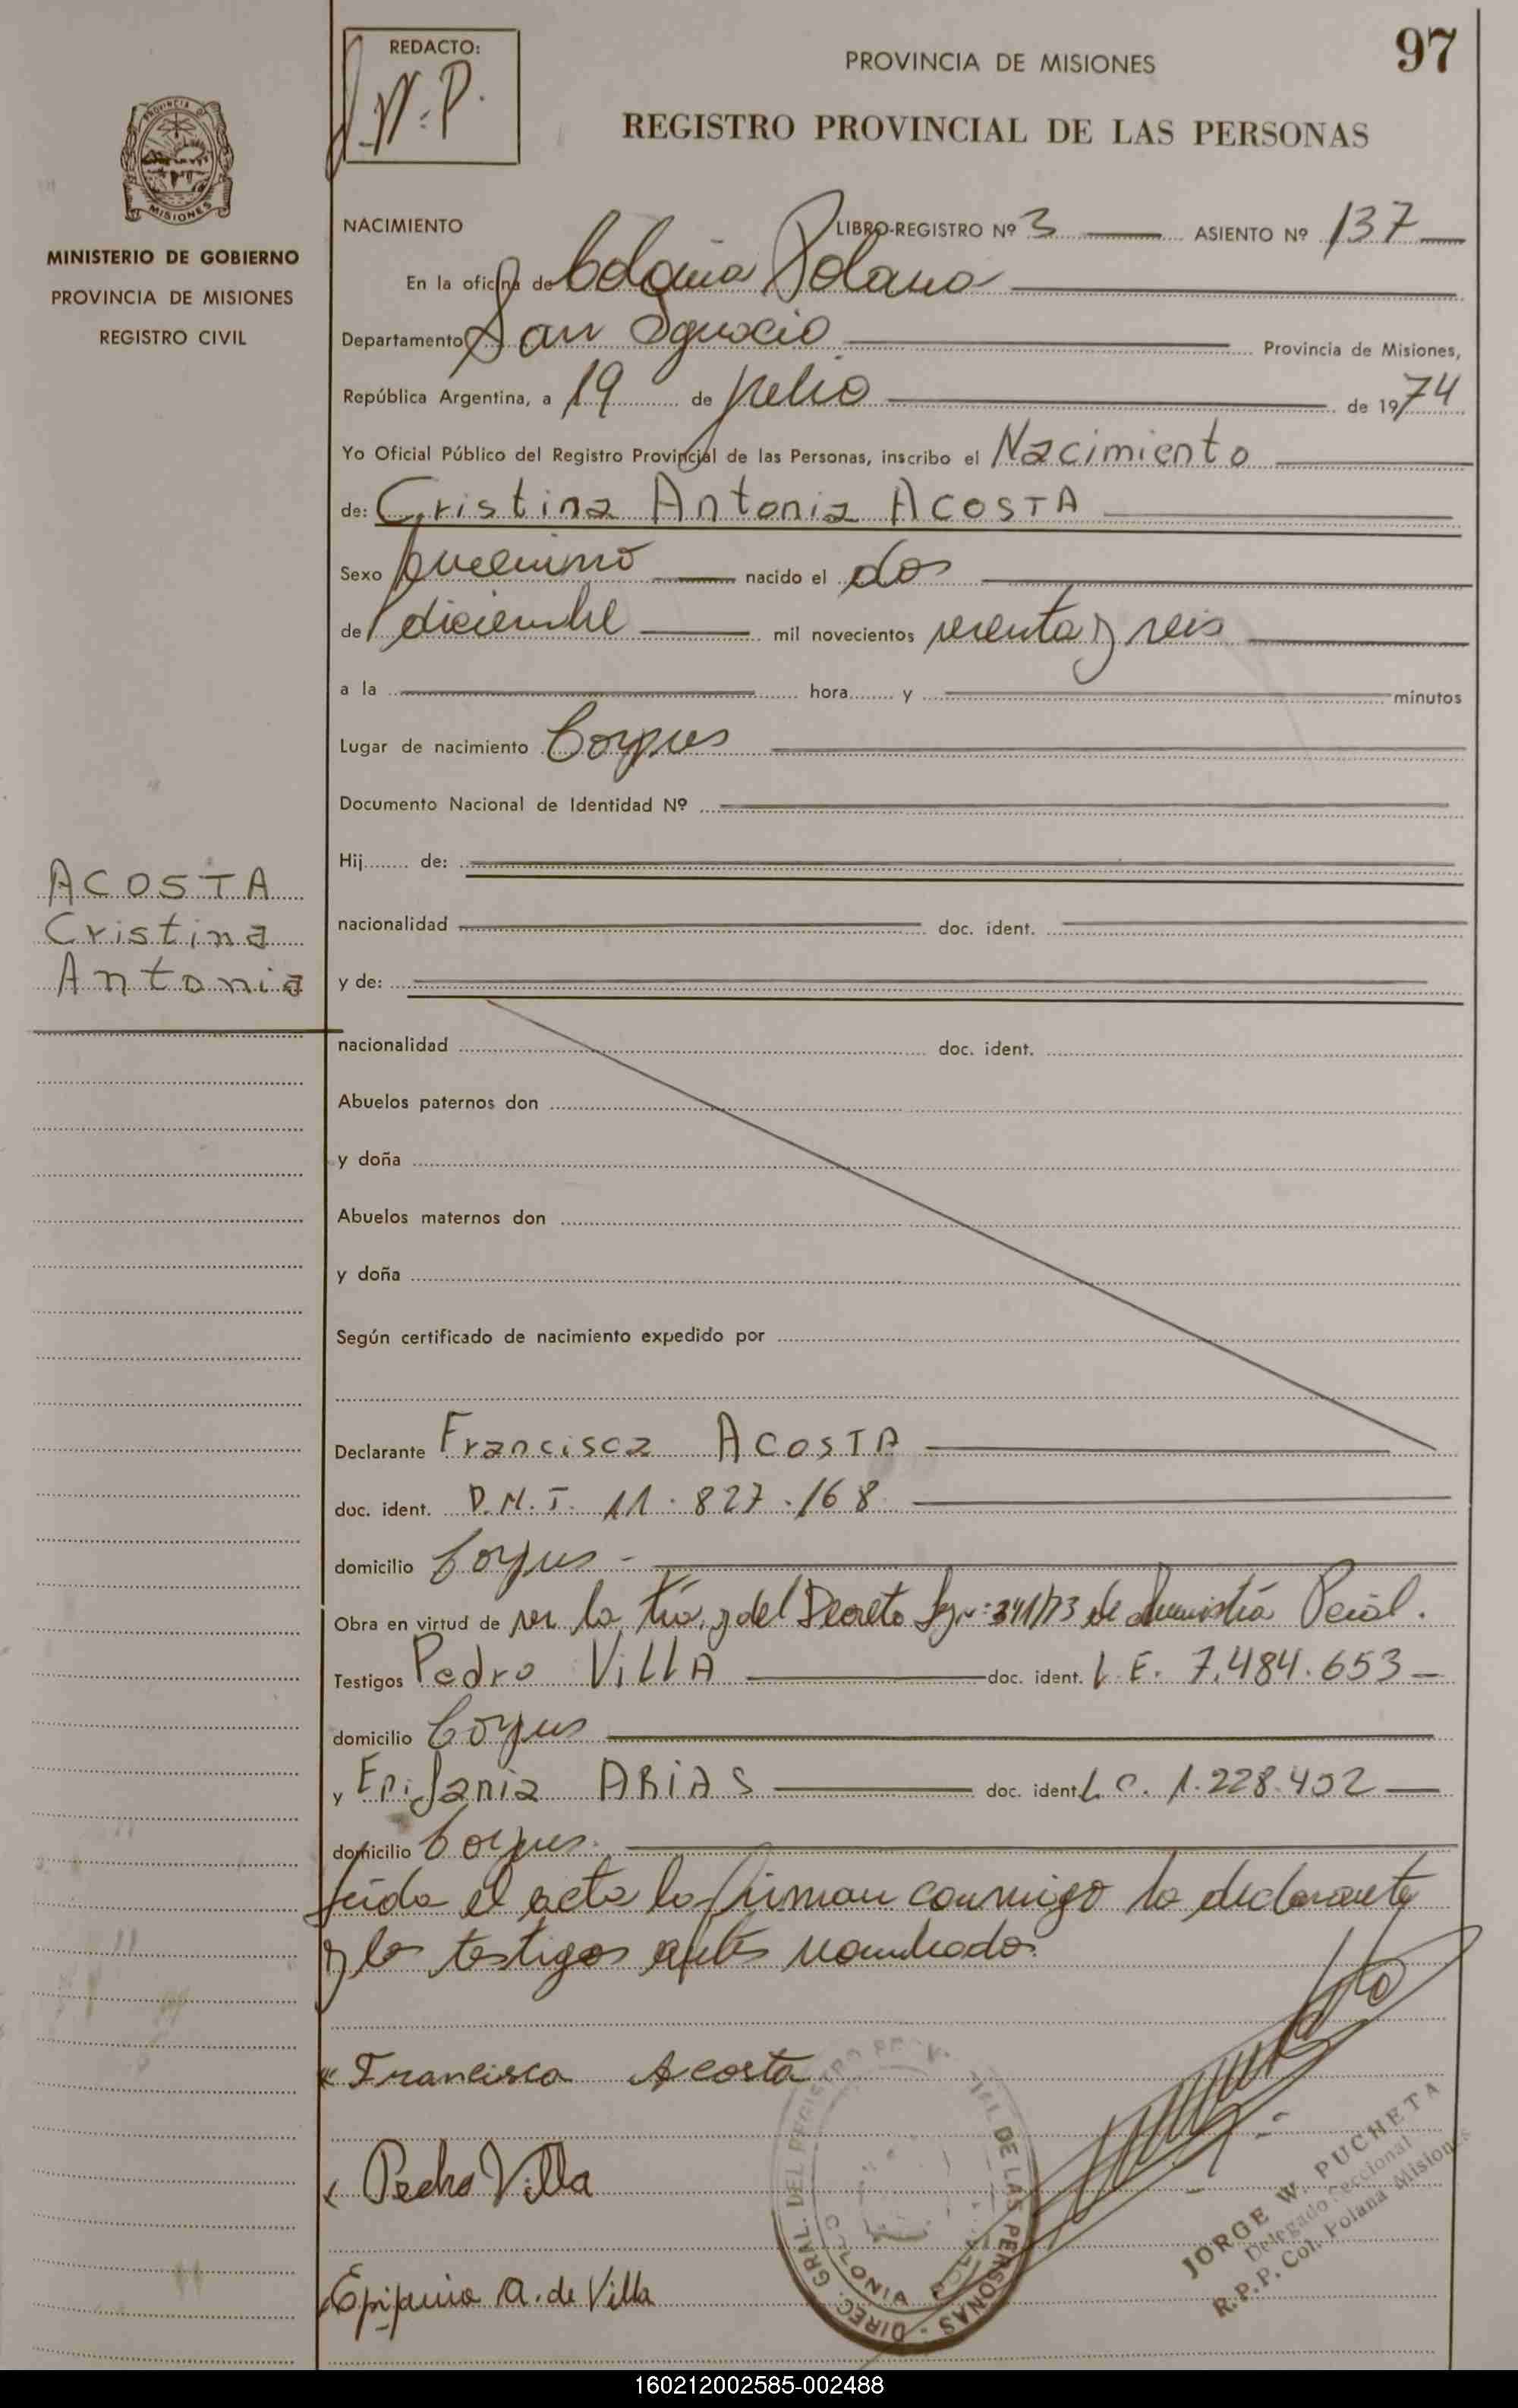 REDACTO:
N.P.
97
PROVINCIA DE MISIONES
REGISTRO PROVINCIAL DE LAS PERSONAS
MISIONES
MINISTERIO DE GOBIERNO
PROVINCIA DE MISIONES
REGISTRO CIVIL
NACIMIENTO LIBRO-REGISTRO Nº 3 ASIENTO Nº 137
En la oficina de Colonia Polana
Departamento San Ignacio Provincia de Misiones,
República Argentina, a 19 de julio de 1974
Yo Oficial Público del Registro Provincial de las Personas, inscribo el Nacimiento
de: Cristina Antonia ACOSTA
Sexo femenino nacido el dos
de diciembre mil novecientos sesenta y seis
a la hora y minutos
Lugar de nacimiento Corpus
Documento Nacional de Identidad Nº
Hij de:
ACOSTA
Cristina
Antonia
nacionalidad doc. ident.
y de:
nacionalidad doc. ident.
Abuelos paternos don
y doña
Abuelos maternos don
y doña
Según certificado de nacimiento expedido por
Declarante Francisca ACOSTA
doc. ident. D.N.I. 11.827.168
domicilio Corpus -
Obra en virtud de ser la tía, y del Decreto 341/73 de
Testigos Pedro VILLA doc. ident. L.E. 7.484.653
domicilio Corpus
y Epifania ARIAS doc. ident L.C. 1.228.402
domicilio Corpus.
Leída el acta la firman conmigo la declarante
y los testigos antes nombrados.
Francisca Acosta
Pedro Villa
Epifania A. de Villa
DIREC. GRAL. DEL REGISTRO PROVINCIAL DE LAS PERSONAS -
COLONIA POLANA
JORGE W. PUCHETA
Delegado Seccional
R.P.P. Col. Polana Misiones
160212002585-002488